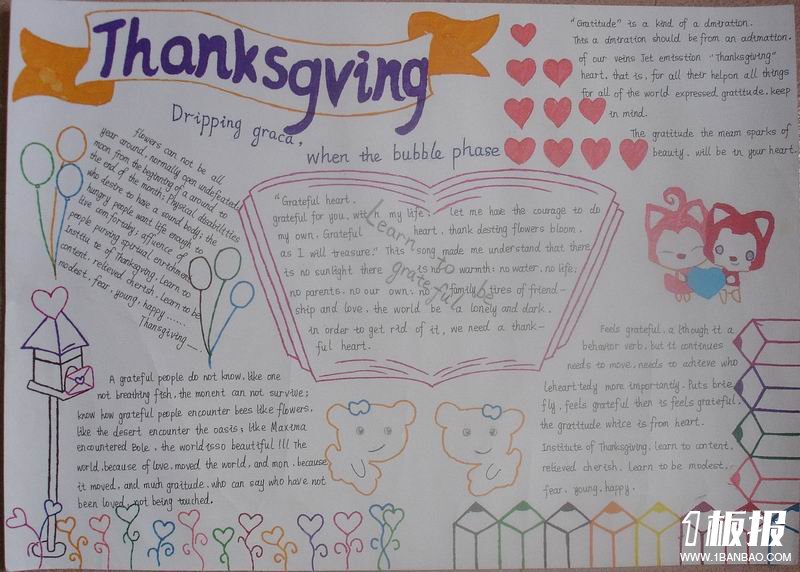 Thanksgving
Dripping graca,
when the bubble phase
"Gratitude" is a kind of a dmiration.
This a dmiration should be from an adimation.
of our veins Jet emisstion "Thanksgiving"
heart, that is, for all their helpon all things
for all of the world expressed gratitude, keep
in mind.
The gratitude the meam sparks of
beauty, will be in your heart.
flowers can not be all
year around, normally open undefeated,
moon from the beginning of a around to
the end of the month; Physical disabilities
who desire to have a sound body; the
hungry people want life enough to
live comfortably; offience of
people pursing spiritual enrichment
Institu te of Thanksgiving, Learn to
content, relieved cherish, Learn to be
modest, fear, young, happy ......
Thansgiving—
"Grateful heart,
grateful for you, with my life, let me have the courage to do
my own. Grateful heart, thank destiny flowers bloom,
as I will treasure." This song made me understand that there
is no sunlight there is no warmth; no water, no life;
no parents, no our own; no family, tires of friend—
ship and love, the world be a lonely and dark,
in order to get rid of it, we need a thank—
ful heart.
Learn to be
grateful
A grateful people do not know, like one
not breathing fish, the monent can not survive;
know how grateful people encounter bees like flowers,
like the desert encounter the oasis; like Maxima
encountered Bole, the world isso beautiful !!! The
world, because of love, moved the world, and man, because
it moved, and much gratitude, who can say who have not
been loved, not being touched.
Feels grateful, a lthough it a
behavior verb, but it continues
needs to move, needs to achieve who
leheartedly more importantly. Puts brie
fly, feels grateful then is feels grateful,
the gratitude whice is from heart.
Institute of Thanksgiving, learn to content,
relieved cherish. Learn to be modest,
fear, young, happy.
1板报
WWW.1BANBAO.COM